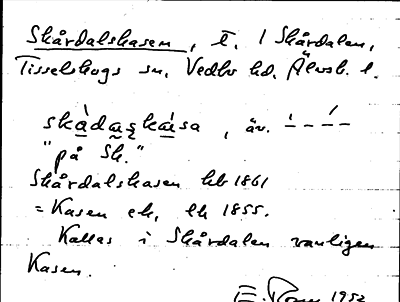 Skårdalskasen, t. i Skårdalen,
Tisselskogs sn, Vedbo hd, Älvsb. l.
skàdaskáısa, äv.
"på Sk."
Skårdalskasen hb 1861
= Kasen ek, lk 1855.
Kallas i Skårdalen vanligen
Kasen.
E. 1952